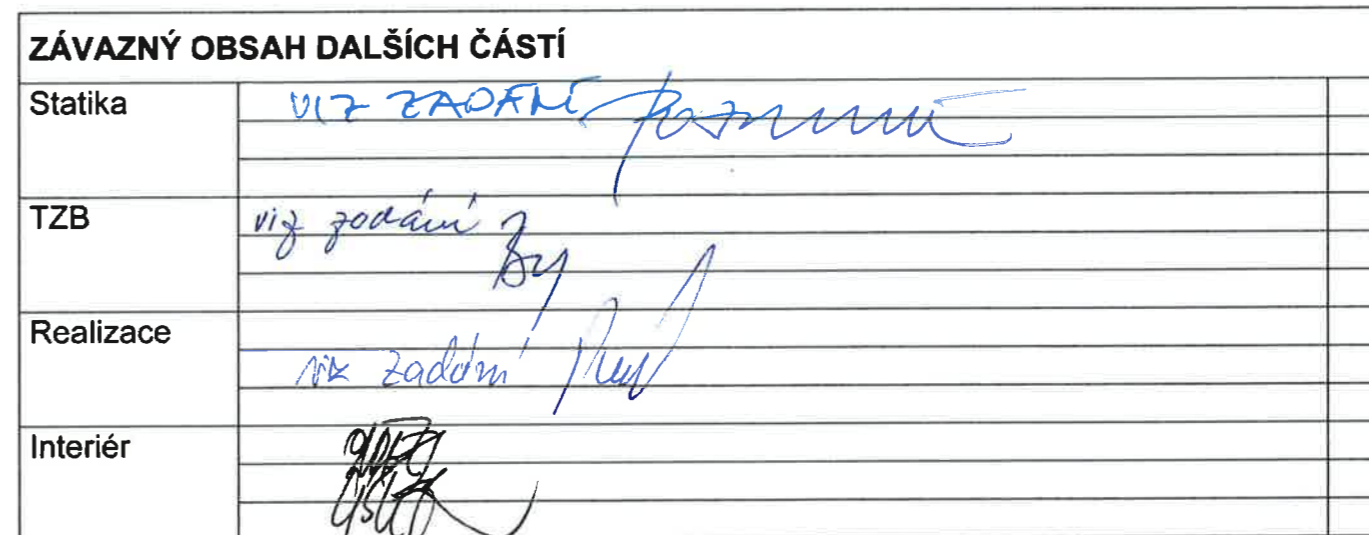 ZÁVAZNÝ OBSAH DALŠÍCH ČÁSTÍ
Statika VIZ ZADÁNÍ
TZB viz zadání
Realizace viz zadání
Interiér